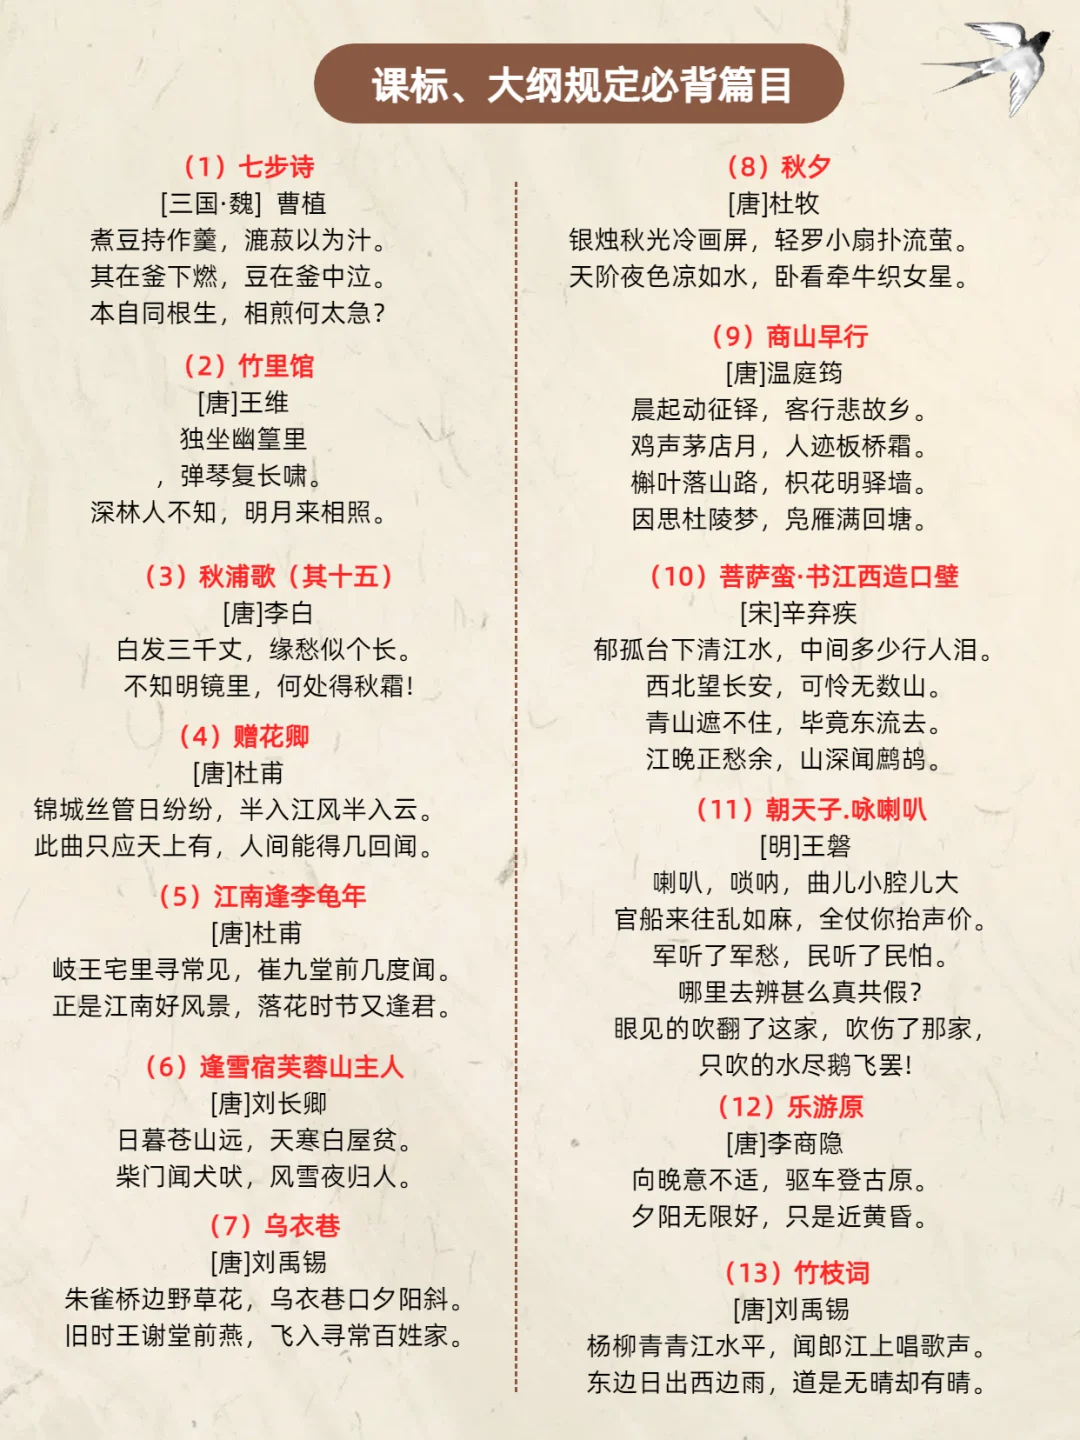 课标、大纲规定必背篇目
（1）七步诗
[三国·魏] 曹植
煮豆持作羹，漉菽以为汁。
其在釜下燃，豆在釜中泣。
本自同根生，相煎何太急？
（2）竹里馆
[唐]王维
独坐幽篁里
，弹琴复长啸。
深林人不知，明月来相照。
（3）秋浦歌（其十五）
[唐]李白
白发三千丈，缘愁似个长。
不知明镜里，何处得秋霜!
（4）赠花卿
[唐]杜甫
锦城丝管日纷纷，半入江风半入云。
此曲只应天上有，人间能得几回闻。
（5）江南逢李龟年
[唐]杜甫
岐王宅里寻常见，崔九堂前几度闻。
正是江南好风景，落花时节又逢君。
（6）逢雪宿芙蓉山主人
[唐]刘长卿
日暮苍山远，天寒白屋贫。
柴门闻犬吠，风雪夜归人。
（7）乌衣巷
[唐]刘禹锡
朱雀桥边野草花，乌衣巷口夕阳斜。
旧时王谢堂前燕，飞入寻常百姓家。
（8）秋夕
[唐]杜牧
银烛秋光冷画屏，轻罗小扇扑流萤。
天阶夜色凉如水，卧看牵牛织女星。
（9）商山早行
[唐]温庭筠
晨起动征铎，客行悲故乡。
鸡声茅店月，人迹板桥霜。
槲叶落山路，枳花明驿墙。
因思杜陵梦，凫雁满回塘。
（10）菩萨蛮·书江西造口壁
[宋]辛弃疾
郁孤台下清江水，中间多少行人泪。
西北望长安，可怜无数山。
青山遮不住，毕竟东流去。
江晚正愁余，山深闻鹧鸪。
（11）朝天子.咏喇叭
[明]王磐
喇叭，唢呐，曲儿小腔儿大
官船来往乱如麻，全仗你抬声价。
军听了军愁，民听了民怕。
哪里去辨甚么真共假？
眼见的吹翻了这家，吹伤了那家，
只吹的水尽鹅飞罢!
（12）乐游原
[唐]李商隐
向晚意不适，驱车登古原。
夕阳无限好，只是近黄昏。
（13）竹枝词
[唐]刘禹锡
杨柳青青江水平，闻郎江上唱歌声。
东边日出西边雨，道是无晴却有晴。